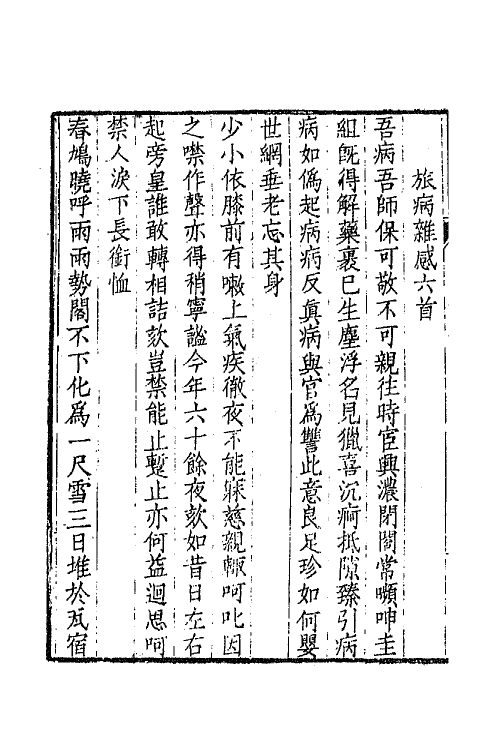 旅病雜感六首
吾病吾師保可敬不可親往時宦興濃閉閤常嚬呻圭
組旣得解藥裹已生塵浮名見獵喜沉痾抵隙臻引病
病如僞起病病反眞病與官爲讐此意良足珍如何嬰
世網垂老忘其身
少小依膝前有嗽上氣疾徹夜不能寐慈親輙呵叱因
之噤作聲亦得稍寧謐今年六十餘夜欬如昔日左右
起旁皇誰敢轉相詰欬豈禁能止蹔止亦何益迴思呵
禁人淚下長銜恤
春鳩曉呼雨雨勢閣不下化爲一尺雪三日堆於瓦宿